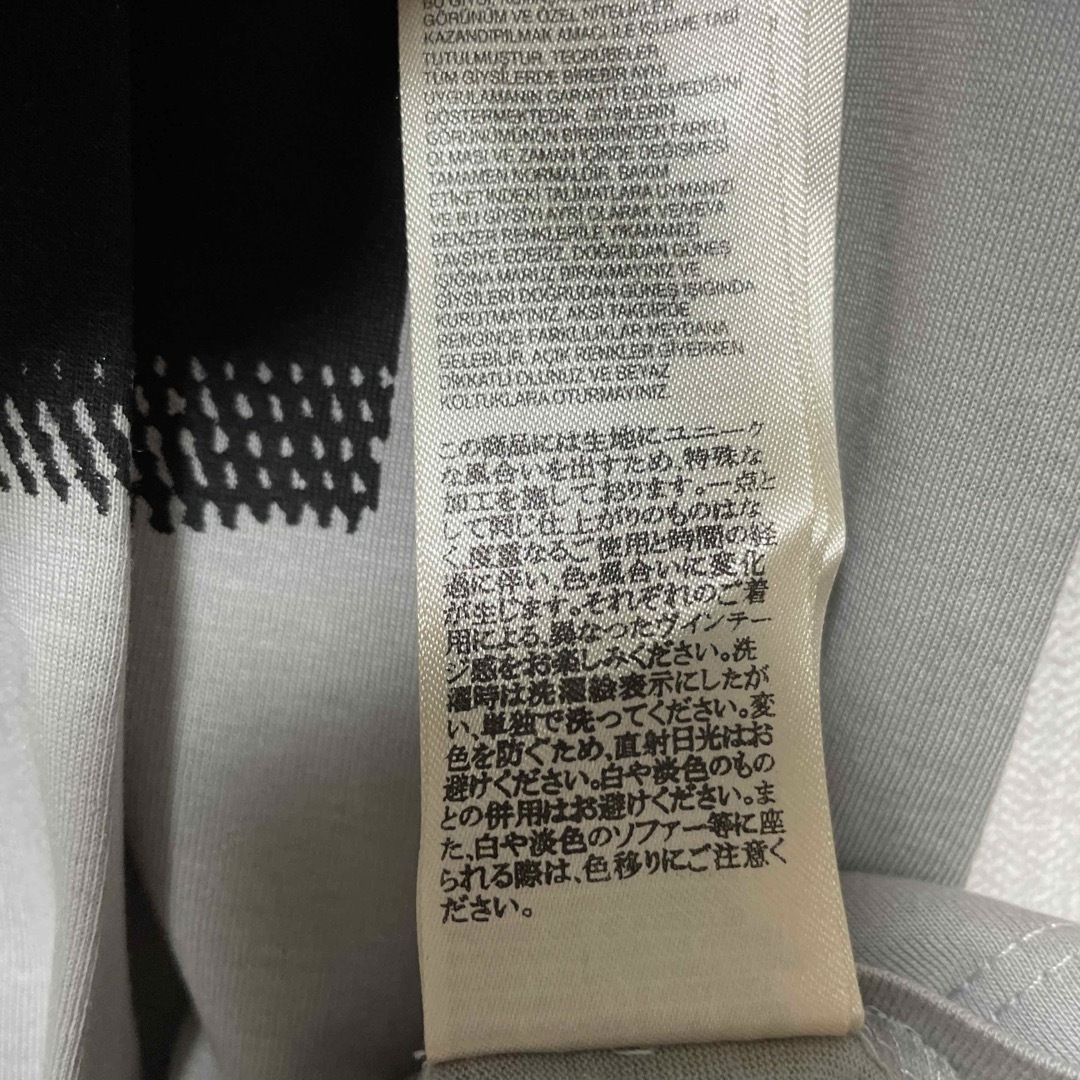 GÖRÜNÜM VE ÖZEL NİTELİKLER
KAZANDIPILMAK AMACI İLE İŞLEME TABİ
TUTULMUŞTUR. TECRÜBELER
TÜM GİYSİLERDE BİREBİR AYNI
UYGULAMANIN GARANTİ EDİLEMEDİĞİNİ
GÖSTERMEKTEDİR. GİYSİLERİN
GÖRÜNÜMÜNÜN BİRBİRİNDEN FARKLI
OLMASI VE ZAMAN İÇİNDE DEĞİŞMESİ
TAMAMEN NORMALDİR. BAKIM
ETİKETİNDEKİ TALİMATLARA UYMANIZI
VE BU GİYSİYİ AYRI OLARAK VE/VEYA
BENZER RENKLERLE YIKAMANIZI
TAVSİYE EDERİZ. DOĞRUDAN GÜNEŞ
IŞIĞINA MARUZ BIRAKMAYINIZ VE
GİYSİLERİ DOĞRUDAN GÜNEŞ IŞIĞINDA
KURUTMAYINIZ. AKSİ TAKDİRDE
RENGİNDE FARKLILIKLAR MEYDANA
GELEBİLİR. AÇIK RENKLER GİYERKEN
DİKKATLİ OLUNUZ VE BEYAZ
KOLTUKLARA OTURMAYINIZ.
この商品には生地にユニーク
な風合いを出すため、特殊な
加工を施しております。一点と
して同じ仕上がりのものはな
く、度重なるご使用と時間の経
過に伴い、色・風合いに変化
が生じます。それぞれのご着
用による、異なったヴィンテー
ジ感をお楽しみください。洗
濯時は洗濯絵表示にしたが
い、単独で洗ってください。変
色を防ぐため、直射日光はお
避けください。白や淡色のもの
との併用はお避けください。ま
た、白や淡色のソファー等に座
られる際は、色移りにご注意く
ださい。